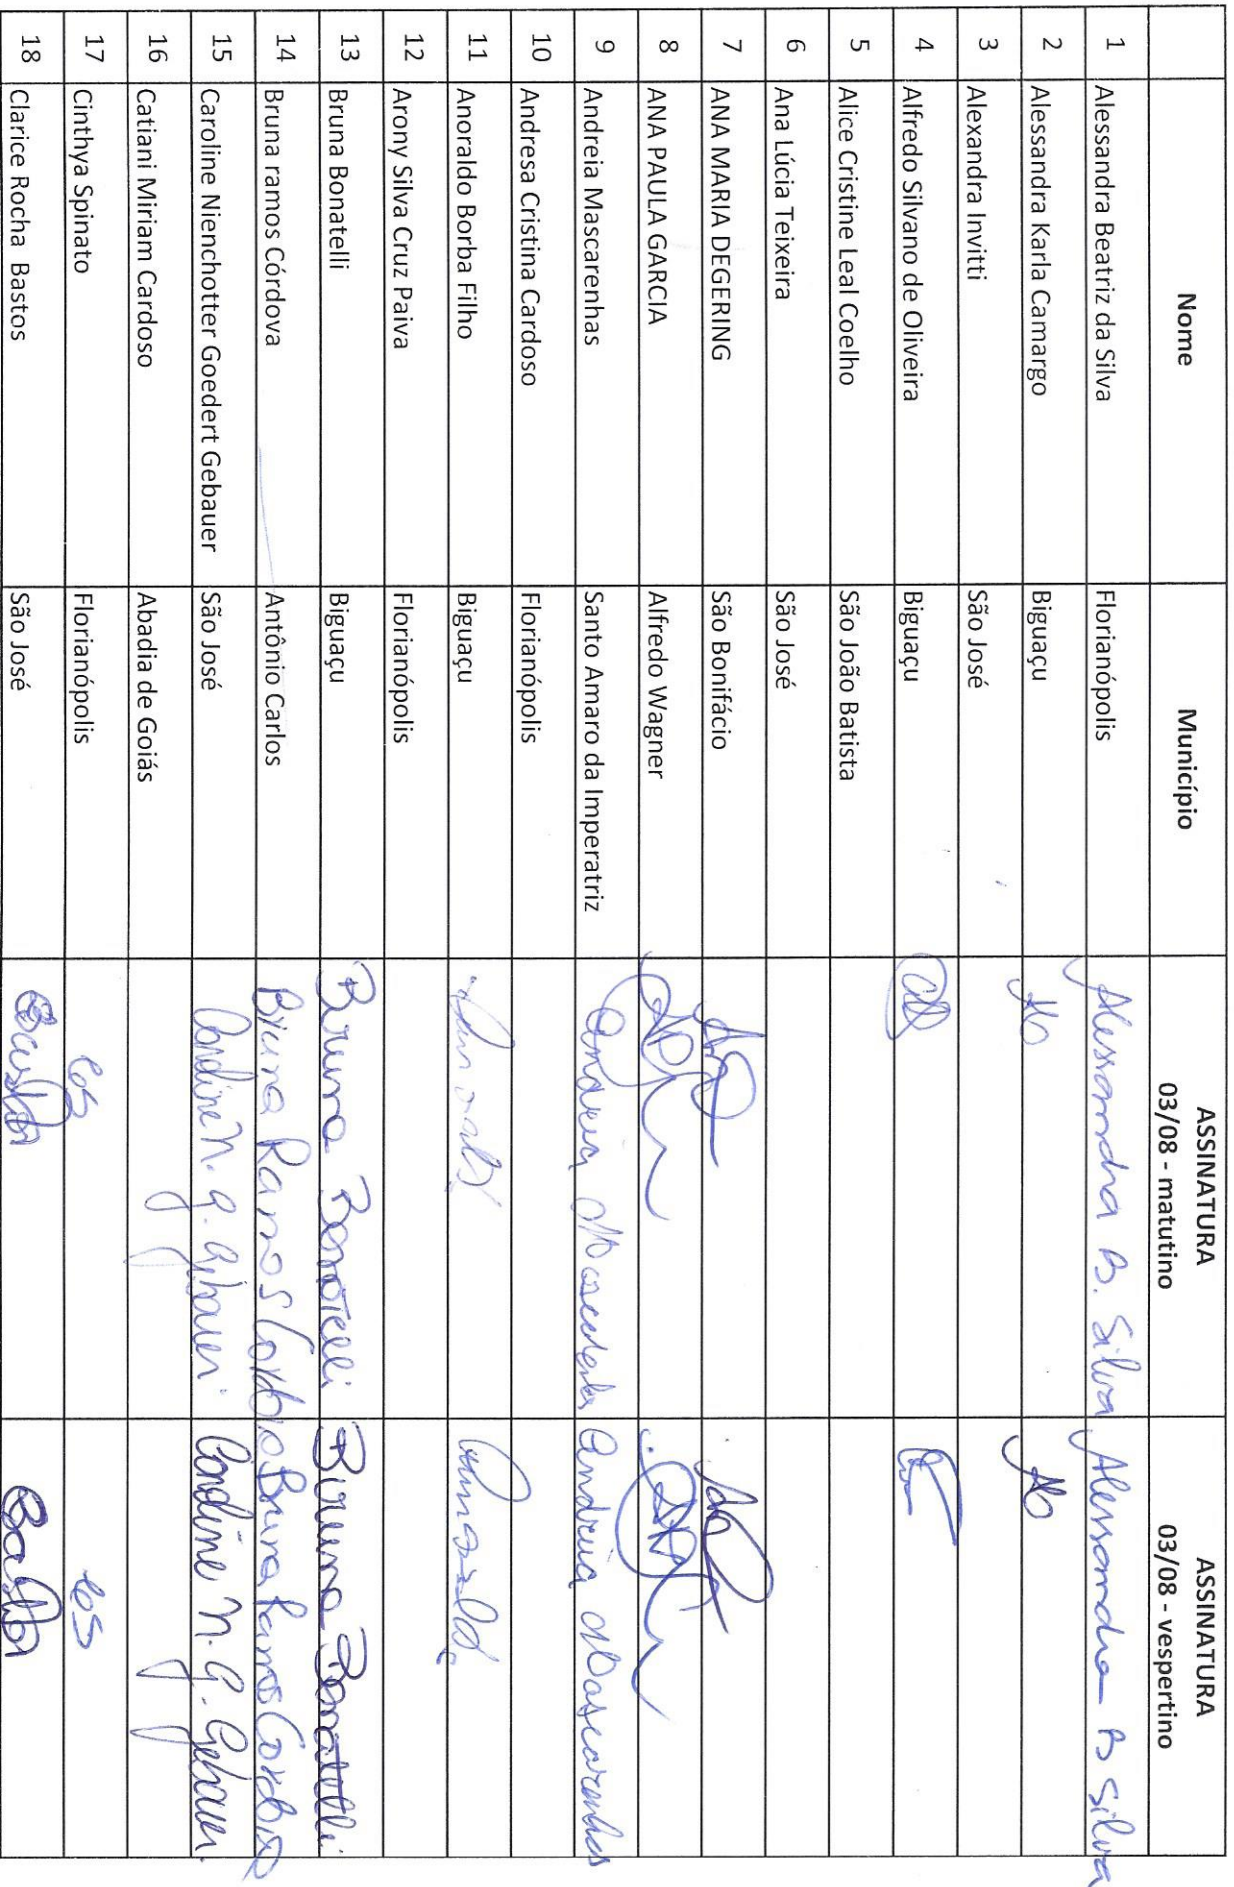 Nome Município ASSINATURA 03/08 - matutino ASSINATURA 03/08 - vespertino
1 Alessandra Beatriz da Silva Florianópolis Alessandra B. Silva Alessandra B Silva
2 Alessandra Karla Camargo Biguaçu
3 Alexandra Invitti São José
4 Alfredo Silvano de Oliveira Biguaçu
5 Alice Cristine Leal Coelho São João Batista
6 Ana Lúcia Teixeira São José
7 ANA MARIA DEGERING São Bonifácio
8 ANA PAULA GARCIA Alfredo Wagner
9 Andreia Mascarenhas Santo Amaro da Imperatriz Andreia Mascarenhas Andreia Mascarenhas
10 Andresa Cristina Cardoso Florianópolis
11 Anoraldo Borba Filho Biguaçu
12 Arony Silva Cruz Paiva Florianópolis
13 Bruna Bonatelli Biguaçu Bruna Bonatelli Bruna Bonatelli
14 Bruna ramos Córdova Antônio Carlos Bruna Ramos Cordova Bruna Ramos Cordova
15 Caroline Nienchotter Goedert Gebauer São José Caroline N. G. Gebauer. Caroline N. G. Gebauer.
16 Catiani Miriam Cardoso Abadia de Goiás
17 Cinthya Spinato Florianópolis
18 Clarice Rocha Bastos São José